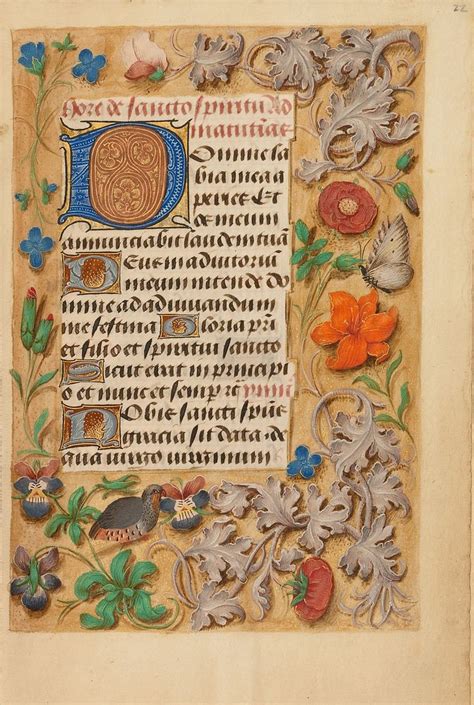 22
Hore de sancto spiritu Ad
matutinas
Domine la
bia mea a
peries Et
os meum
annunciabit laudem tuã
Deus in adiutoriũ
meum intende do
mine ad adiuuandum
me festina Gloria pr̃i
et filio et spiritui sancto
Sicut erat in principio
o et nunc et semper
Nobis sancti spũs
gracia sit data de
qua uirgo uirginum